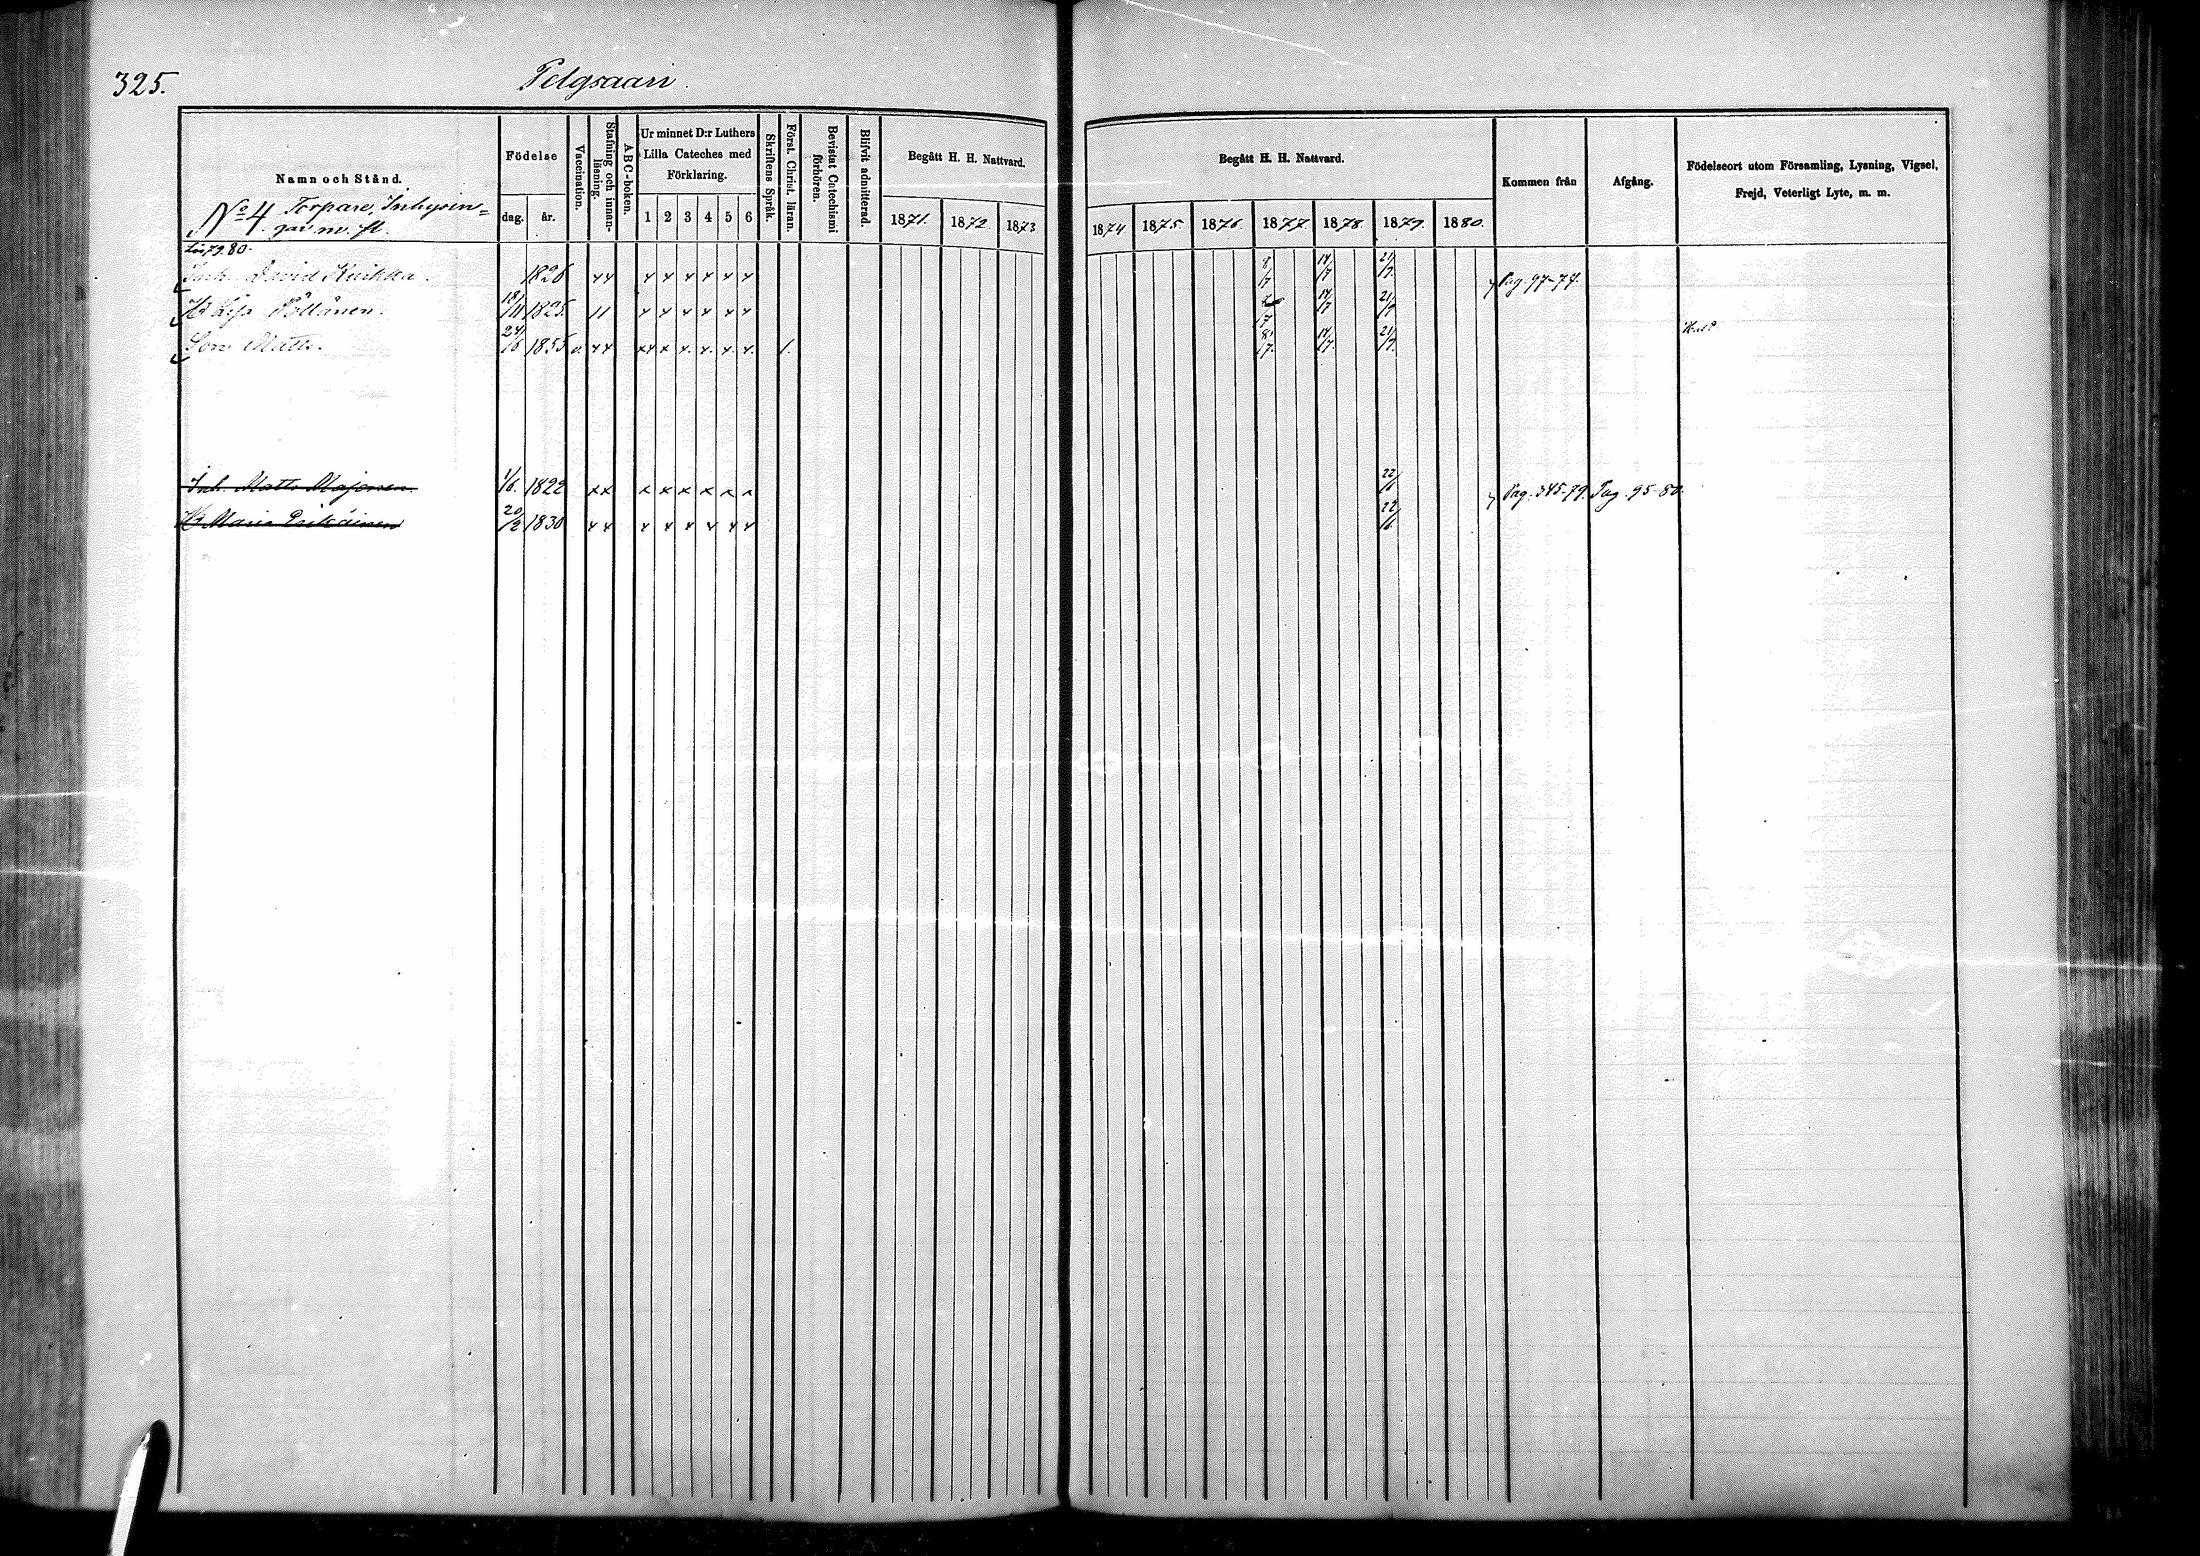 325.
Pelgsaari.
Namn och Stånd.
No 4. Torpare, Inhysin=
gar m. fl.
Födelse
dag. år.
Vaccination.
Stafning och innan-
läsning.
ABC-boken.
Ur minnet D:r Luthers
Lilla Cateches med
Förklaring.
1 2 3 4 5 6
Skriftens Språk.
Först. Christ. läran.
Bevistat Catechismi
förhören.
Blifvit admitterad.
Begått H. H. Nattvard.
1871. 1872. 1873
Begått H. H. Nattvard.
1874 1875. 1876. 1877. 1878. 1879. 1880.
Kommen från
Afgång.
Födelseort utom Församling, Lysning, Vigsel,
Frejd, Veterligt Lyte, m. m.
79.80.
Inh. David 1826 x x x x x x x x 8/7 14/7 21/7. Pag. 97-77.
H. Lisa Pöllänen. 18/11 1825. 11 x x x x x x 7 14/7 21/7
Son Matts. 24/6 1855 v. x x x x x x. x. x. x. 1. 8/7. 14/7. 21/7.
Inh. Matts Majonen. 1/6. 1822 x x x x x x x x 22/6 Pag. 345-79. Pag. 95-80.
H. Maria 20/2 1830 x x x x x x x x 22/6.